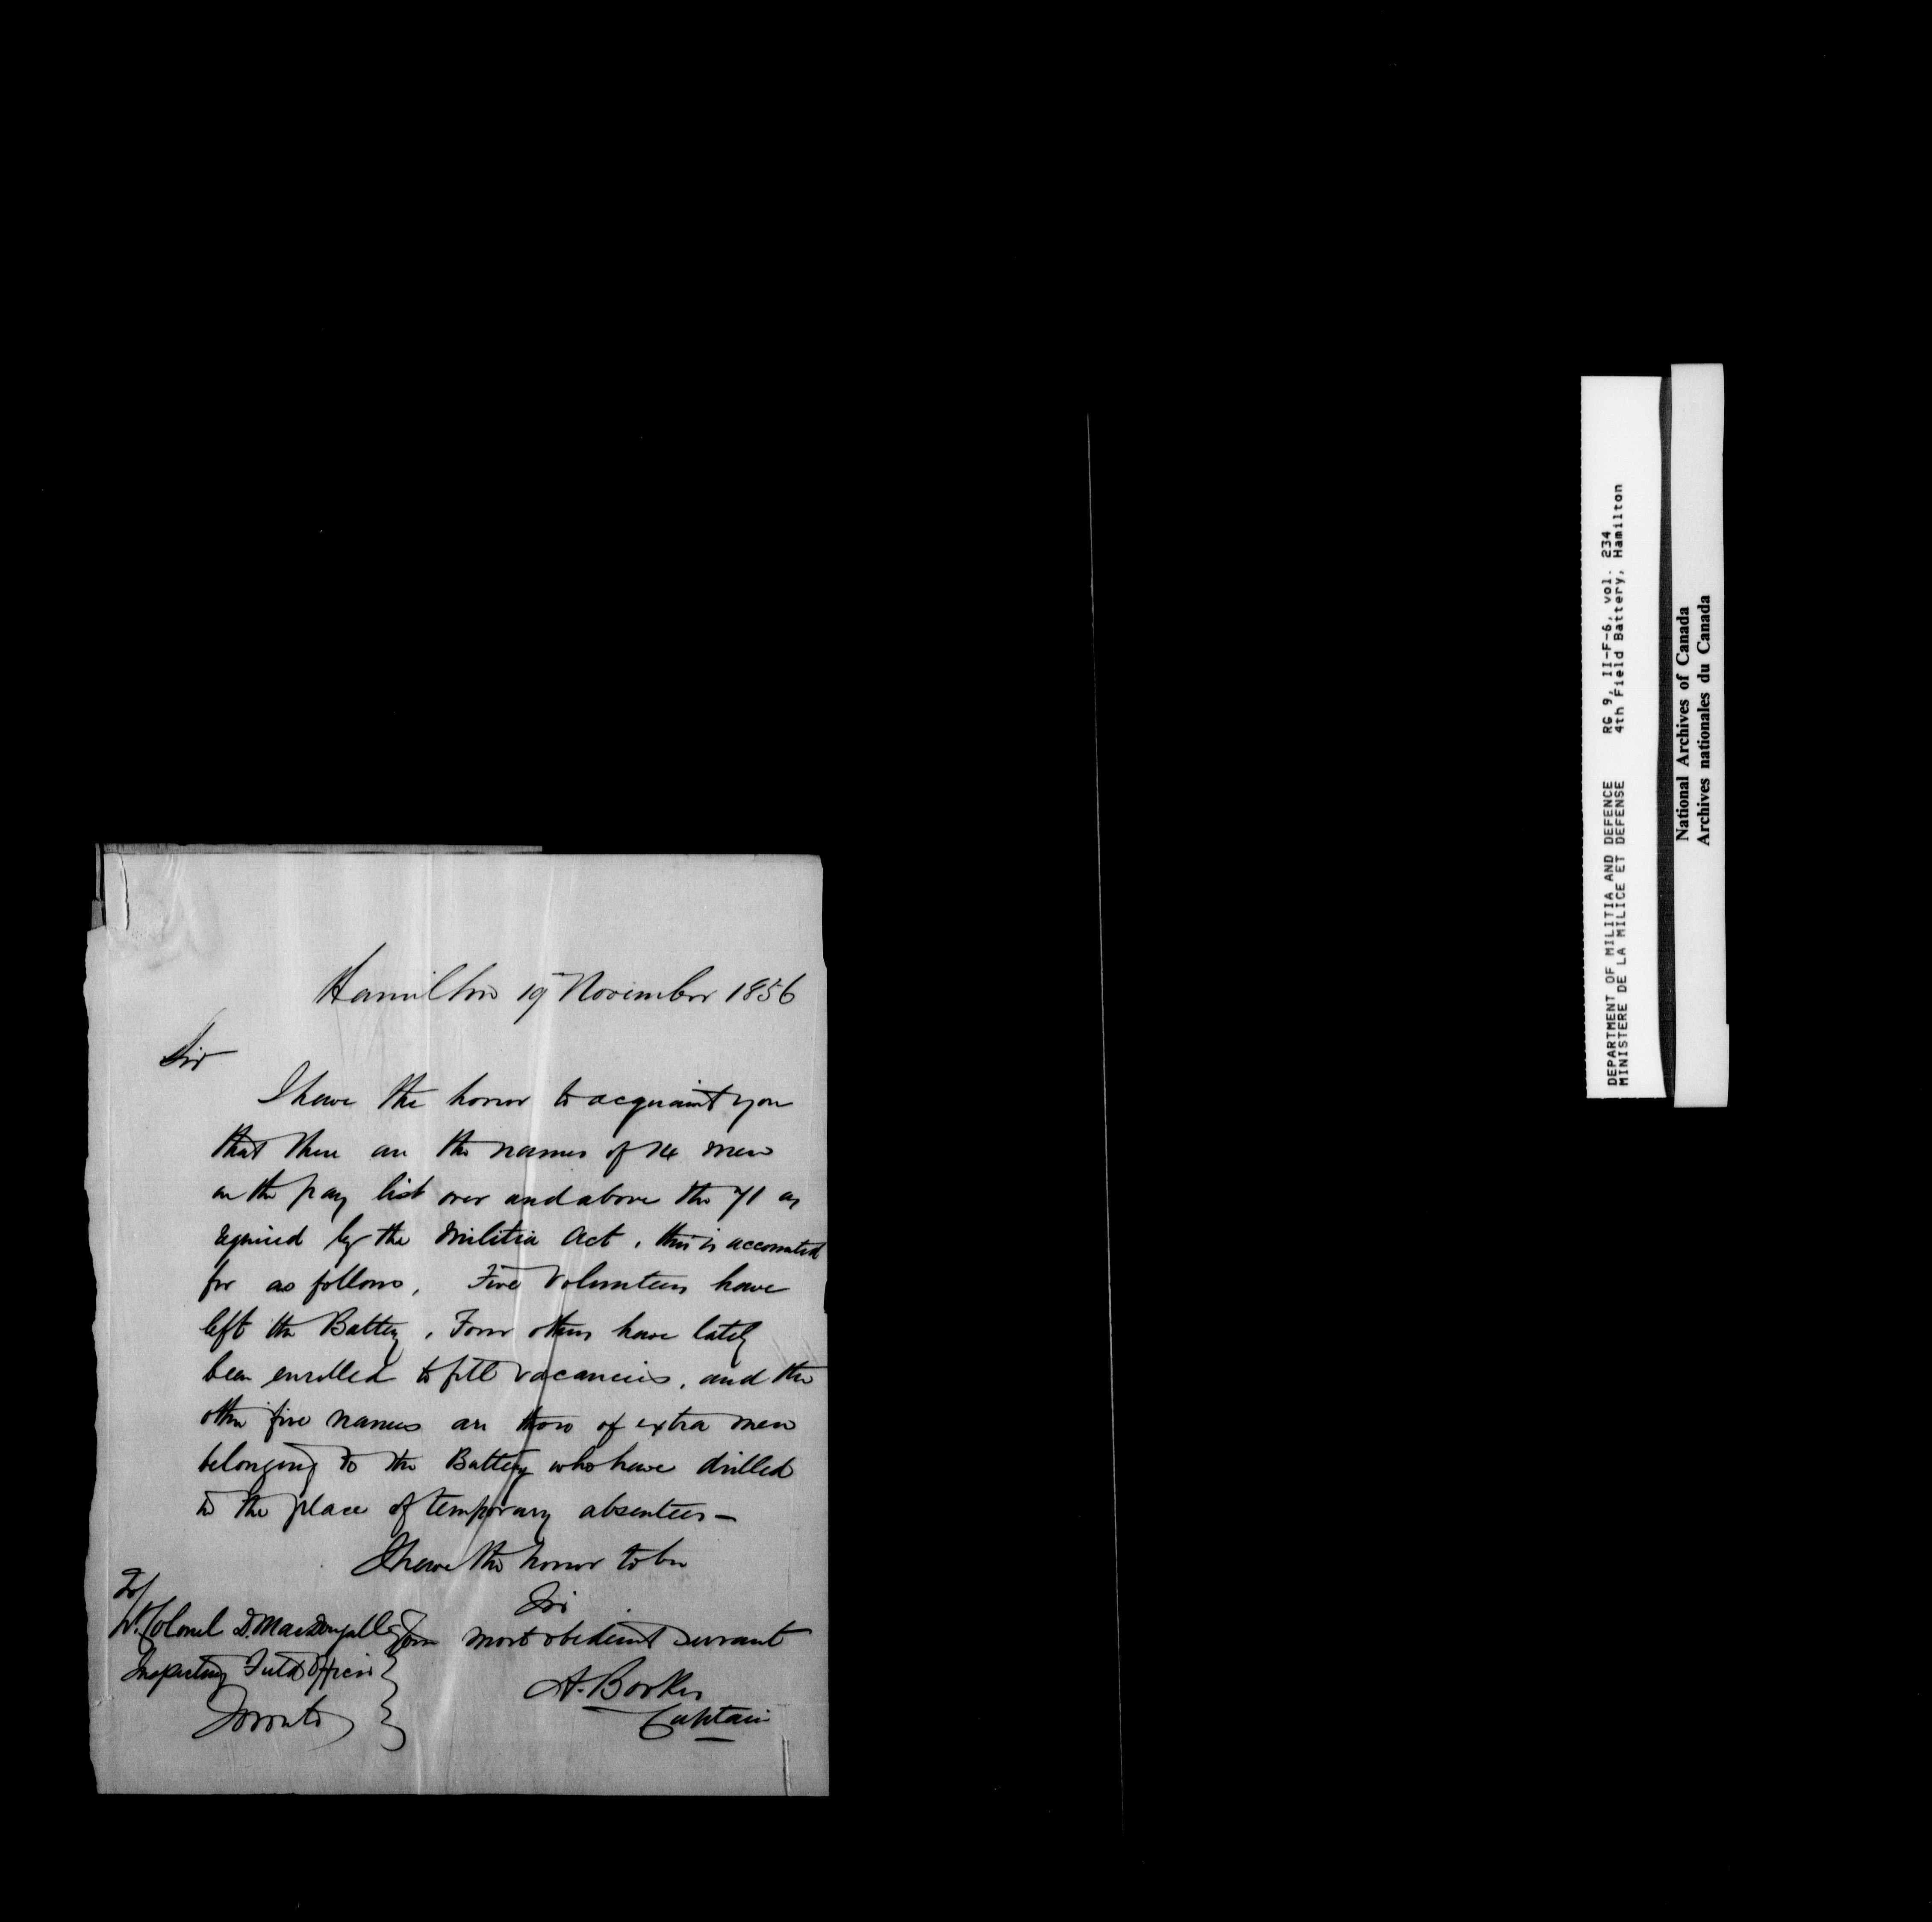 Hamilton 19 November 1856
Sir
I have the honor to acquaint you
that there are the names of 14 men
on the pay list over and above the 71 as
required by the Militia Act, this is accounted
for as follows, Five Volunteers have
left the Battery, Four others have lately
been enrolled to fill vacancies, and the
other five names are those of extra men
belonging to the Battery who have drilled
in the place of temporary absentees —
I have the honor to be
Sir
Your most obedient Servant
A. Booker
Captain
To/
Lt. Colonel D. MacDougall
Inspecting Field Officer
Toronto
DEPARTMENT OF MILITIA AND DEFENCE RG 9, II-F-6, vol. 234
MINISTERE DE LA MILICE ET DEFENSE 4th Field Battery, Hamilton
National Archives of Canada
Archives nationales du Canada